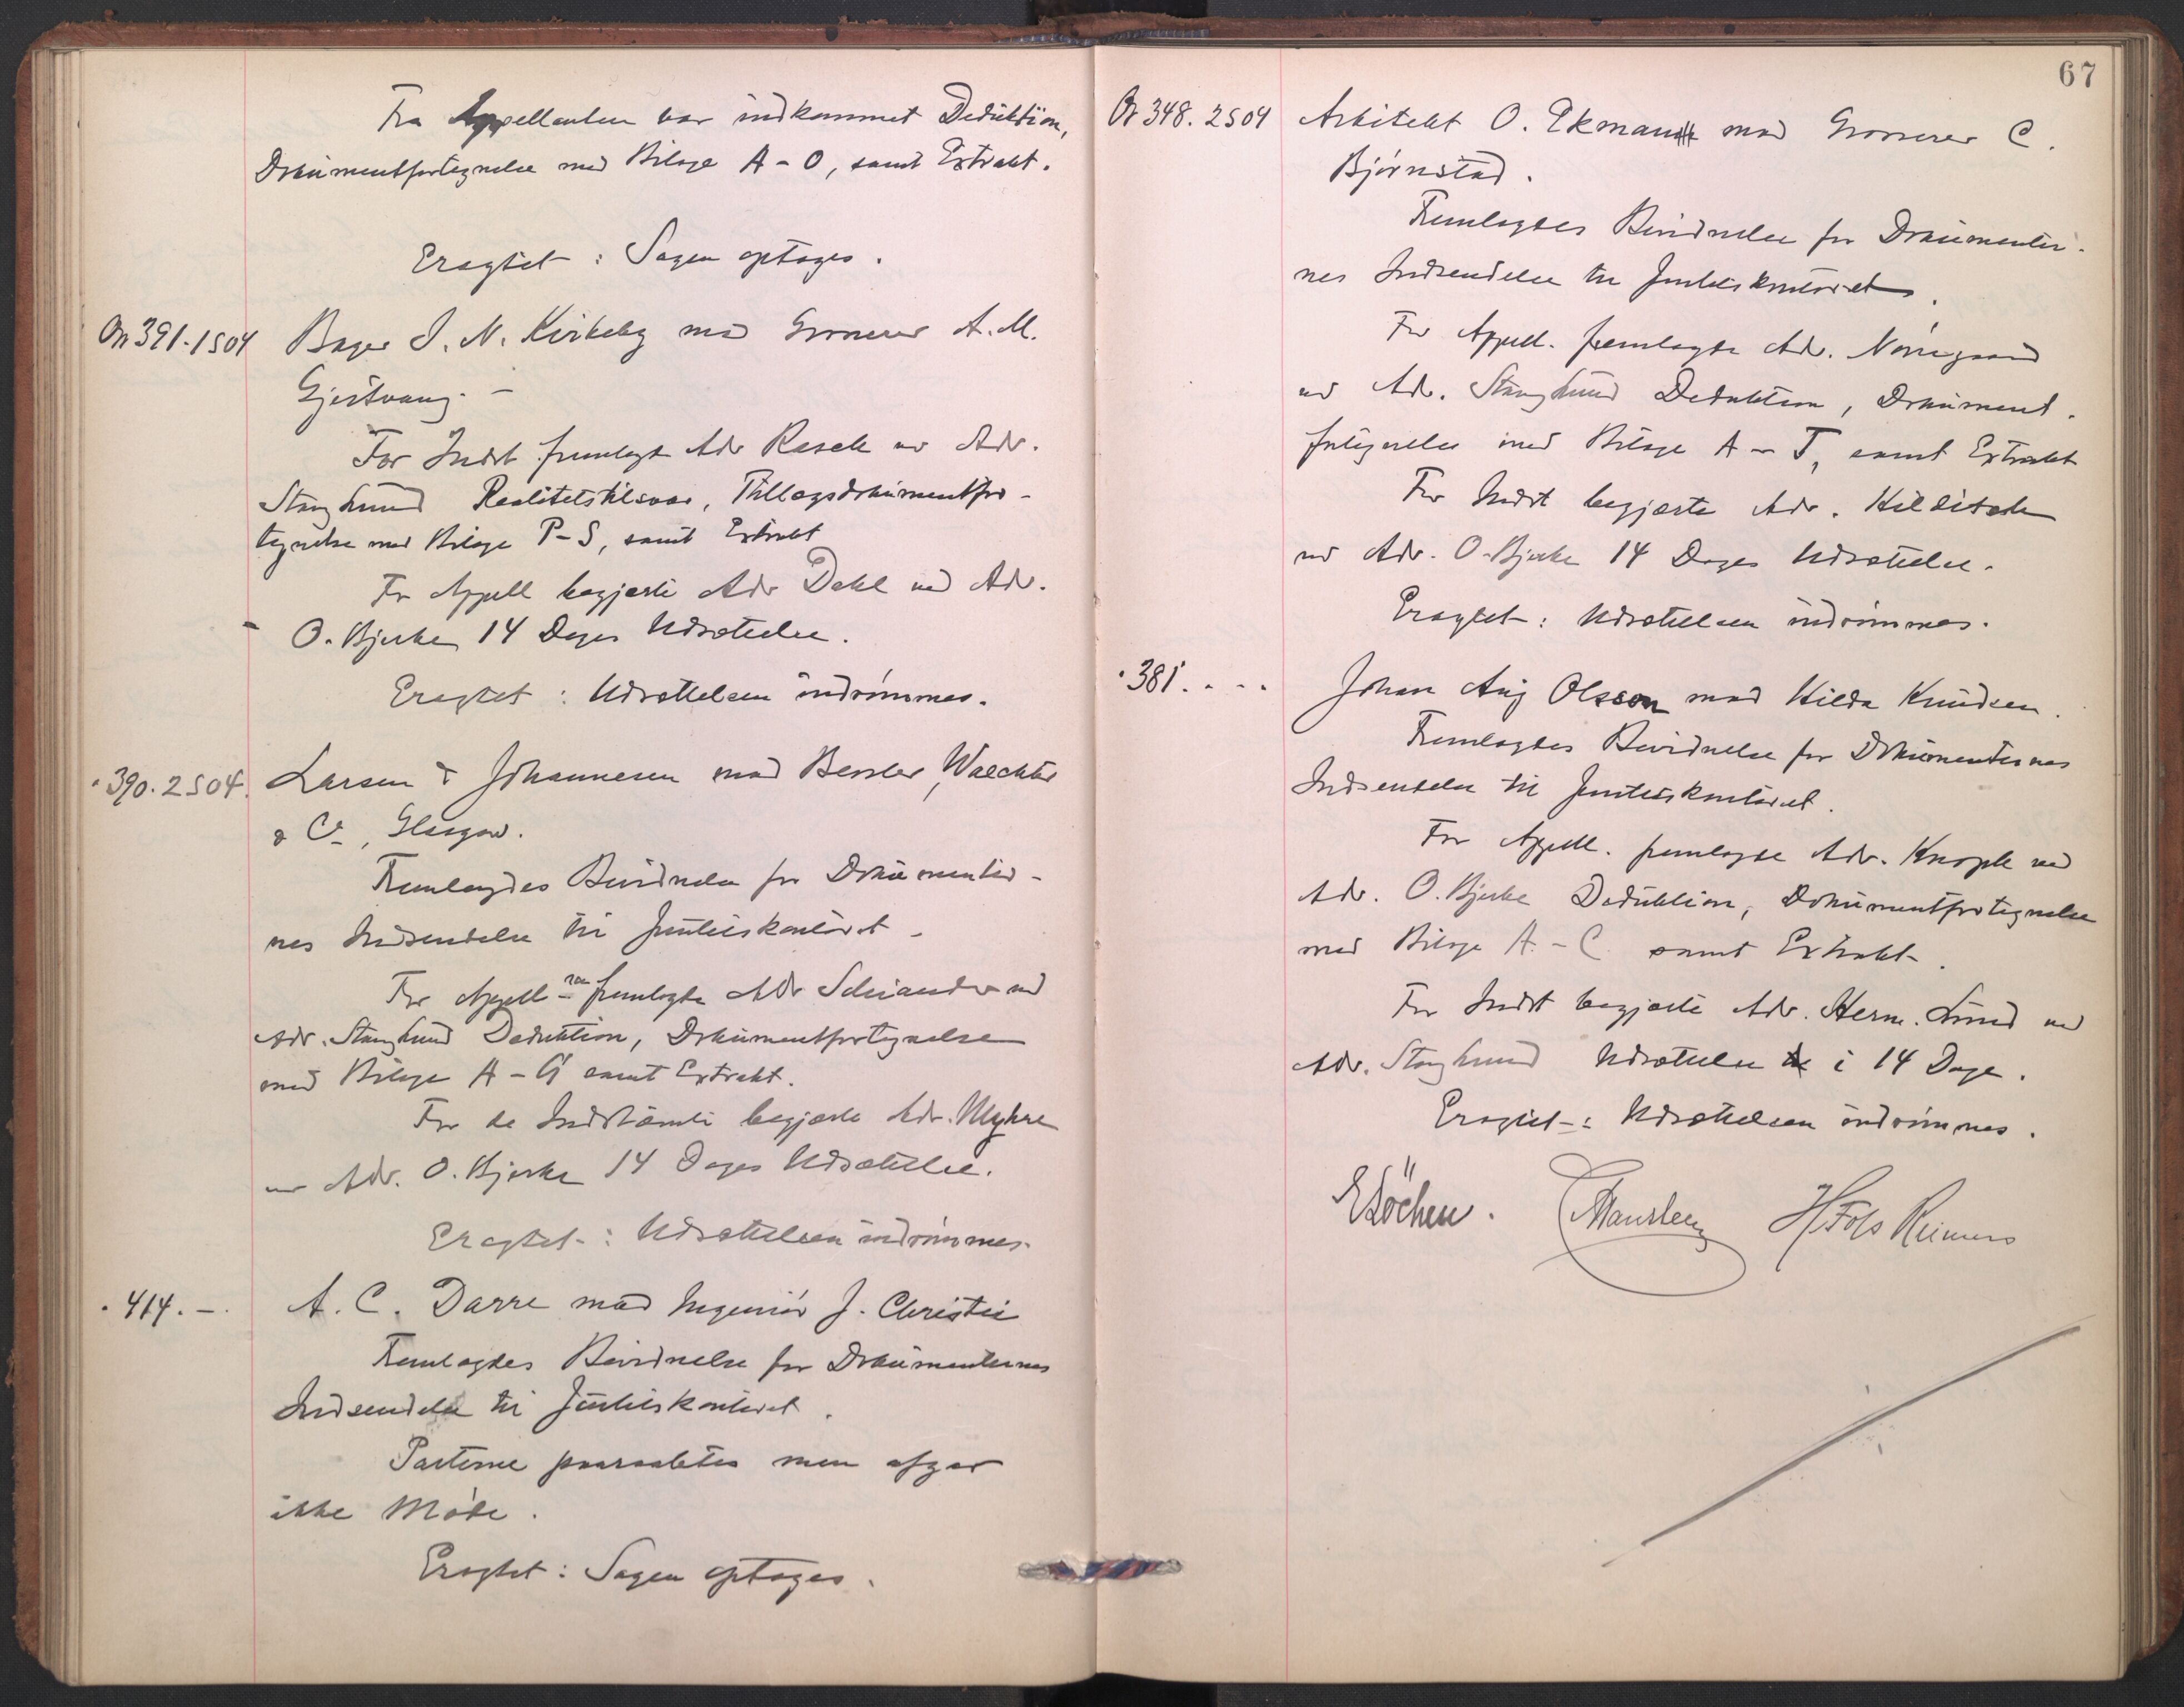 Fra Appellanten var indkommet Deduktion,
Dokumentfortegnelse med Bilage A-O, samt Extrakt.
Eragtet: Sagen optages.
On 391-1504 Bager J. N. Kirkeby mod Grosserer A. M.
Gjestvang. -
For Indst fremlagde Adv Rasch ved Adv.
Stang Lund Realitetstilsvar, Tillægsdokumentfor-
tegnelse med Bilage P-S, samt Extrakt
For Appell begjærte Adv Dahl ved Adv.
O. Bjerke 14 Dages Udsættelse.
Eragtet: Udsættelsen indrømmes.
" 390. 2504. Larsen & Johannesen mod Bessler, Waechter
& Co, Glasgow.
Fremlagdes Bevidnelse for Dokumenter-
nes Indsendelse til Justitskontoret.
For Appell-ne fremlagde Adv ved
Adv. Stang Lund Deduktion, Dokumentfortegnelse
med Bilage A-G samt Extrakt.
For de Indstævnte begjærte Adv. Myhre
ved Adv. O. Bjerke 14 Dages Udsættelse.
Eragtet: Udsættelsen indrømmes.
" 414. - A. C. Darre mod Ingeniør J. Christie
Fremlagdes Bevidnelse for Dokumenternes
Indsendelse til Justitskontoret.
Parterne paaraabtes men afgav
ikke Møde.
Eragtet: Sagen optages.
67
Or 348. 2504 Arkitekt O. Ekman mod Grosserer C.
Bjørnstad.
Fremlagdes Bevidnelse for Dokumenter-
nes Indsendelse til Justitskontoret.
For Appell. fremlagde Adv. Nørregaard
ved Adv. Stang Lund Deduktion, Dokument-
fortegnelse med Bilage A-T, samt Extrakt
For Indst begjærte Adv. Hilditch
ved Adv. O. Bjerke 14 Dages Udsættelse.
Eragtet: Udsættelsen indrømmes.
" 381. - - - Johan Aug Olsson mod Hilda Knudsen.
Fremlagdes Bevidnelse for Dokumenternes
Indsendelse til Justitskontoret.
For Appell. fremlagde Adv. Knoph ved
Adv. O. Bjerke Deduktion, Dokumentfortegnelse
med Bilage A.-C. samt Extrakt.
For Indst begjærte Adv. Herm. Lund ved
Adv. Stang Lund Udsættelse i 14 Dage.
Eragtet: Udsættelsen indrømmes.
E Løchen. H Fols Reimers